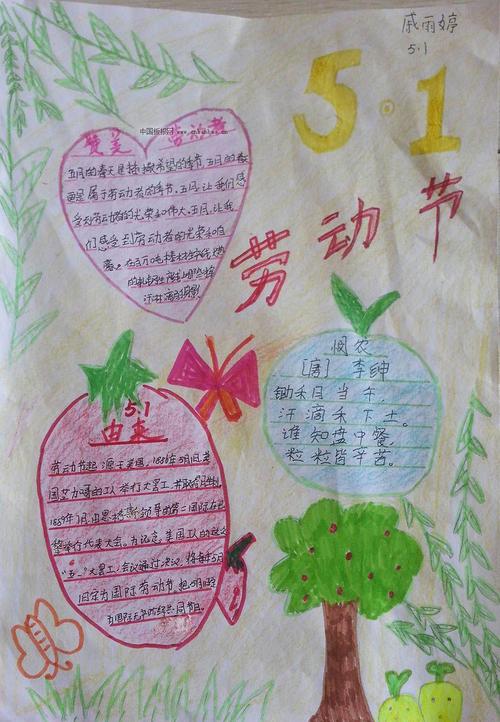 戚丽婷
5.1
5·1
劳动节
赞美 劳动者
中国板报网 www.
五月的春天是播撒希望的季节,五月的春
更是属于劳动者的季节。五月,让我们感
受到劳动者的光荣和伟大。五月,让我
们感受到劳动者的光荣和自
豪。
悯农
[唐] 李绅
锄禾日当午,
汗滴禾下土。
谁知盘中餐,
粒粒皆辛苦。
5.1
由来
劳动节起源于美国,1886年5月1日美
国芝加哥的工人举行大罢工,并取得胜利
1889年7月由恩格斯领导的第二国际在巴
黎举行代表大会。为纪念,美国工人的这次
"五一"大罢工,会议通过决议,将每年5月
1日定为国际劳动节,